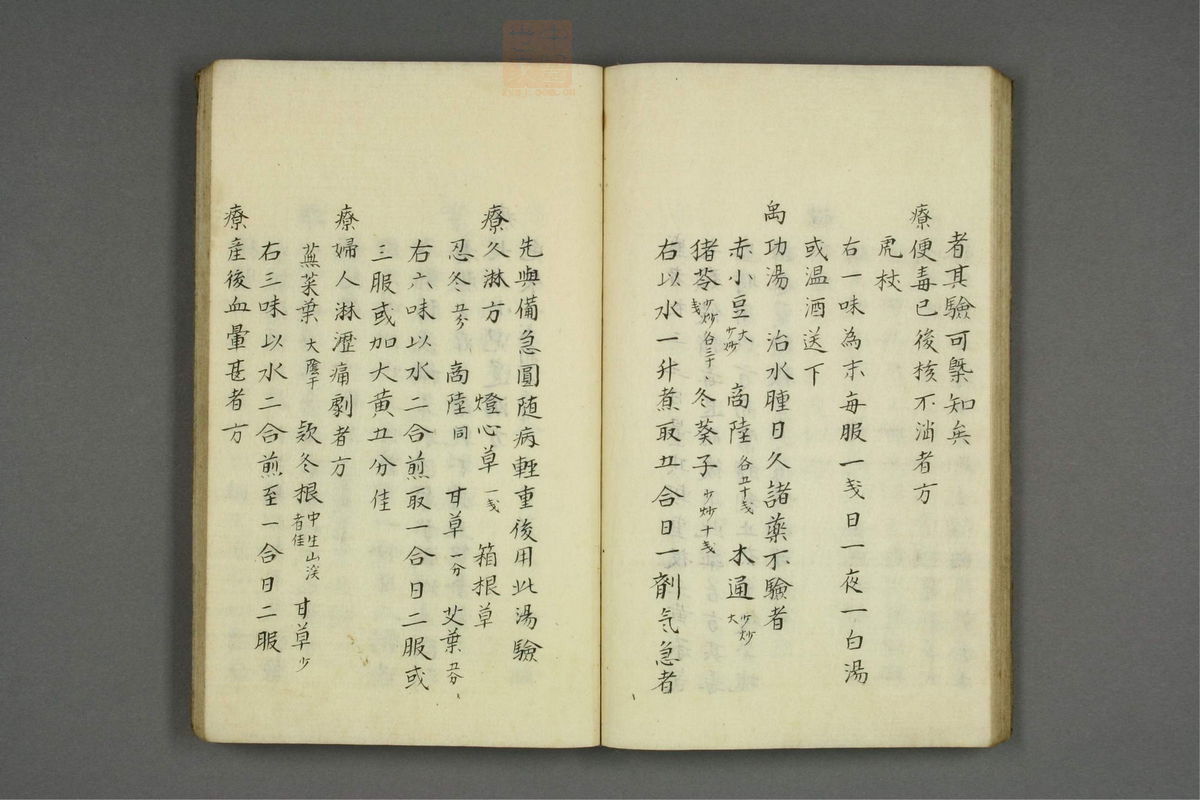 者其驗可槩知矣
療便毒已後核不消者方
虎杖
右一味為末每服一戔日一夜一白湯
或温酒送下
禹功湯 治水腫日久諸藥不驗者
赤小豆大少炒 商陸各五十戔 木通少炒大
猪苓少炒各三十戔 冬葵子少炒十戔
右以水一升煮取五合日一劑気急者
先與備急圓随病輕重後用此湯驗
療久淋方 燈心草一戔 箱根草
忍冬五分 商陸同 甘草一分 艾葉五分
右六味以水二合煎取一合日二服或
三服或加大黄五分佳
療婦人淋瀝痛劇者方
葉大陰干 款冬根中生山溪者佳 甘草少
右三味以水二合煎至一合日二服
療産後血暈甚者方